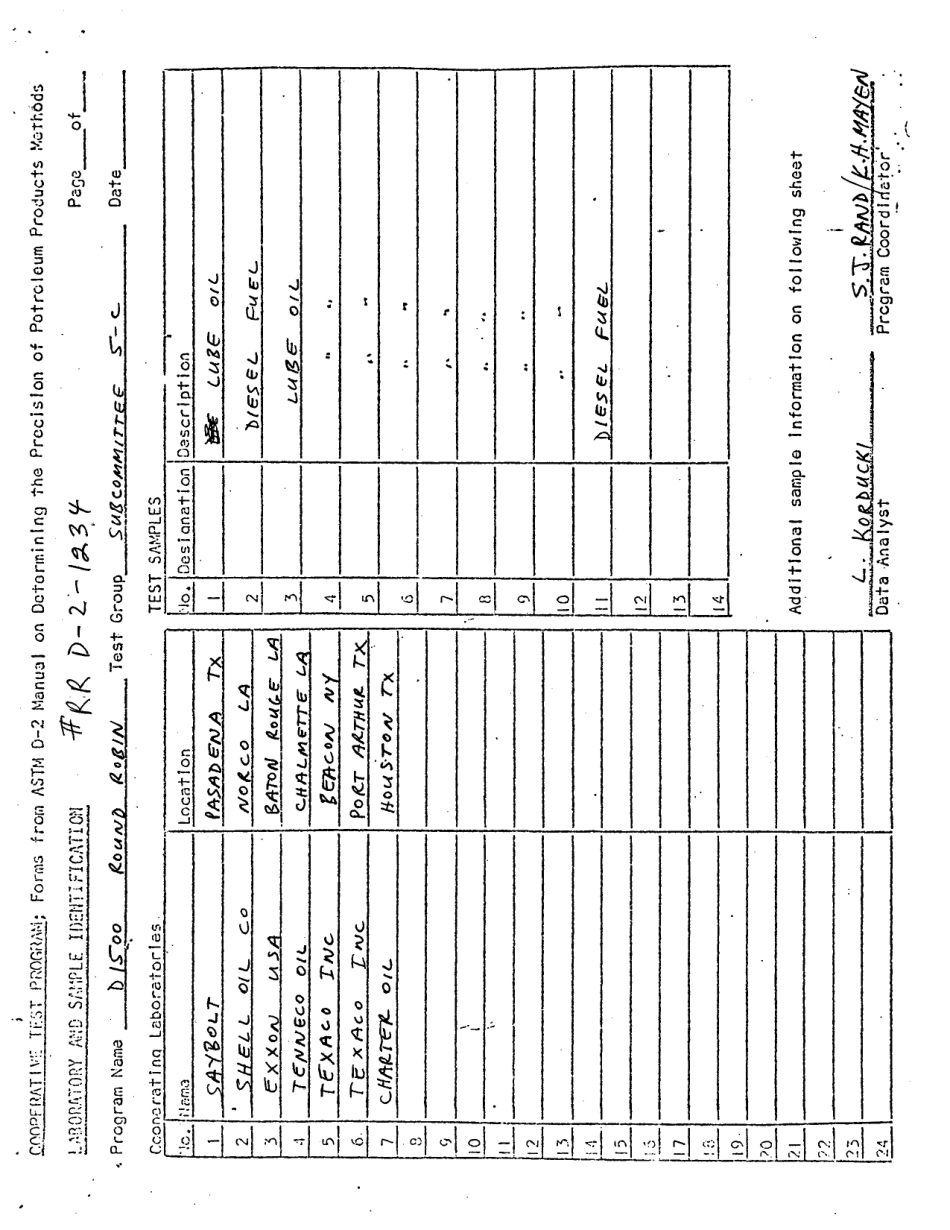 COOPERATIVE TEST PROGRAM; Forms from ASTM D-2 Manual on Determining the Precision of Petroleum Products Methods
LABORATORY AND SAMPLE IDENTIFICATION #RR D-2-1234 Page___of___
Program Name D1500 ROUND ROBIN Test Group SUBCOMMITTEE 5-C Date
Cooperating Laboratories
No. Name Location
1 SAYBOLT PASADENA TX
2 SHELL OIL CO NORCO LA
3 EXXON USA BATON ROUGE LA
4 TENNECO OIL CHALMETTE LA
5 TEXACO INC BEACON NY
6. TEXACO INC PORT ARTHUR TX
7 CHARTER OIL HOUSTON TX
8
9
10
11
12
13
14
15
16
17
18
19
20
21
22
23
24
TEST SAMPLES
No. Designation Description
1 LUBE OIL
2 DIESEL FUEL
3 LUBE OIL
4 " "
5 " "
6 " "
7 " "
8 " "
9 " "
10 " "
11 DIESEL FUEL
12
13
14
Additional sample information on following sheet
L. KORDUCKI S.J. RAND/K.H. MAYEN
Data Analyst Program Coordinator